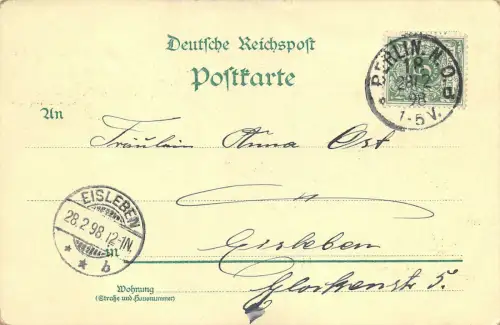 Deutsche Reichspost
Postkarte
BERLIN. N.O.
18
98
1-5 V.
An
Fräulein Anna Ost
EISLEBEN
28.2.98.12-1N.
* * b
in
Eisleben
Wohnung
(Straße und Hausnummer)
Glockenstr 5.